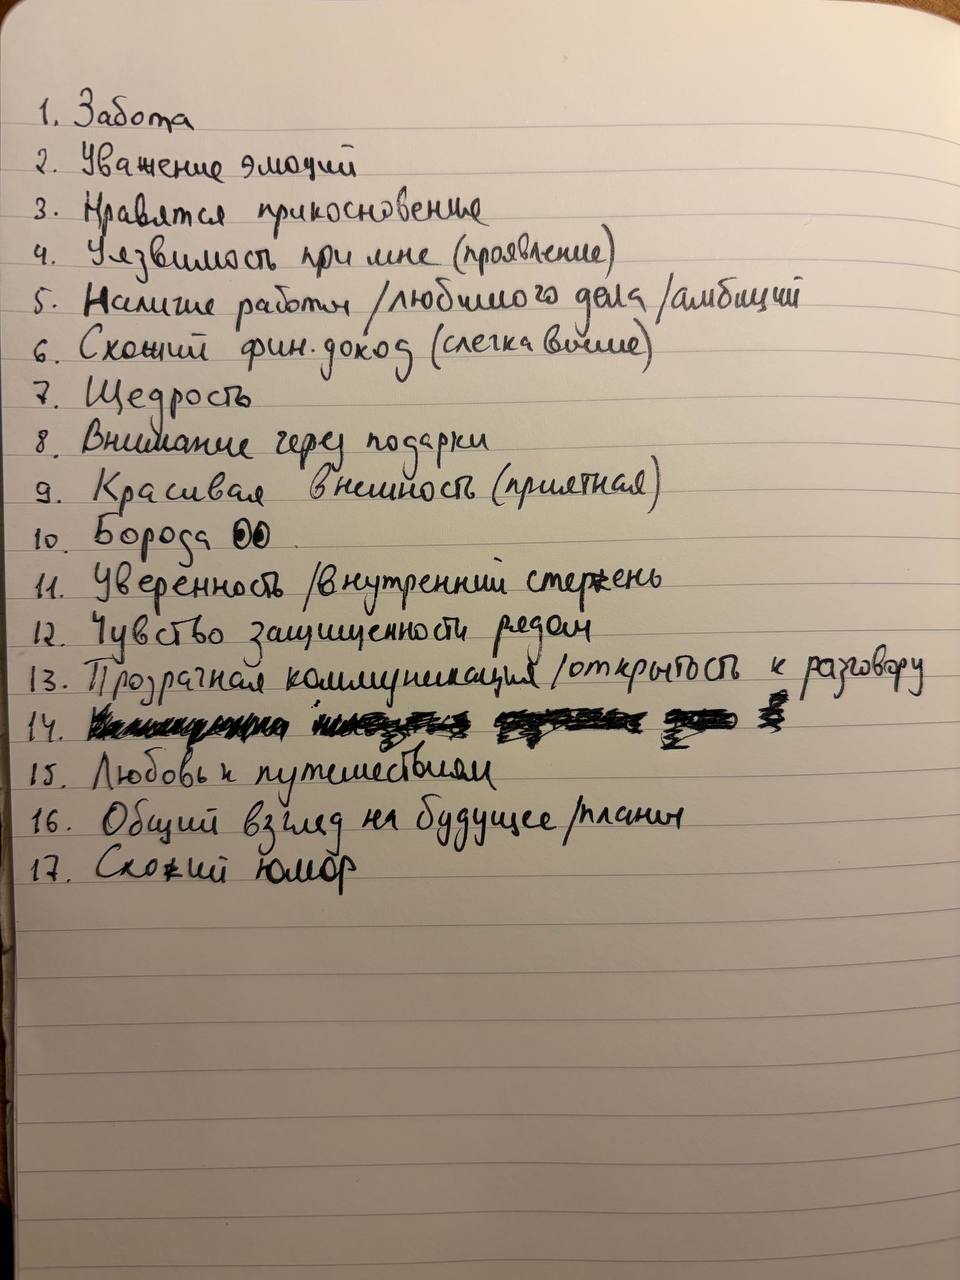 1. Забота
2. Уважение эмоций
3. Нравятся прикосновение
4. Уязвимость при мне (проявление)
5. Наличие работы /любимого дела /амбиций
6. Схожий фин. доход (слегка выше)
7. Щедрость
8. Внимание через подарки
9. Красивая внешность (приятная)
10. Борода
11. Уверенность /внутренний стержень
12. Чувство защищенности рядом
13. Прозрачная коммуникация /открытость к разговору
14.
15. Любовь к путешествиям
16. Общий взгляд на будущее /планы
17. Схожий юмор